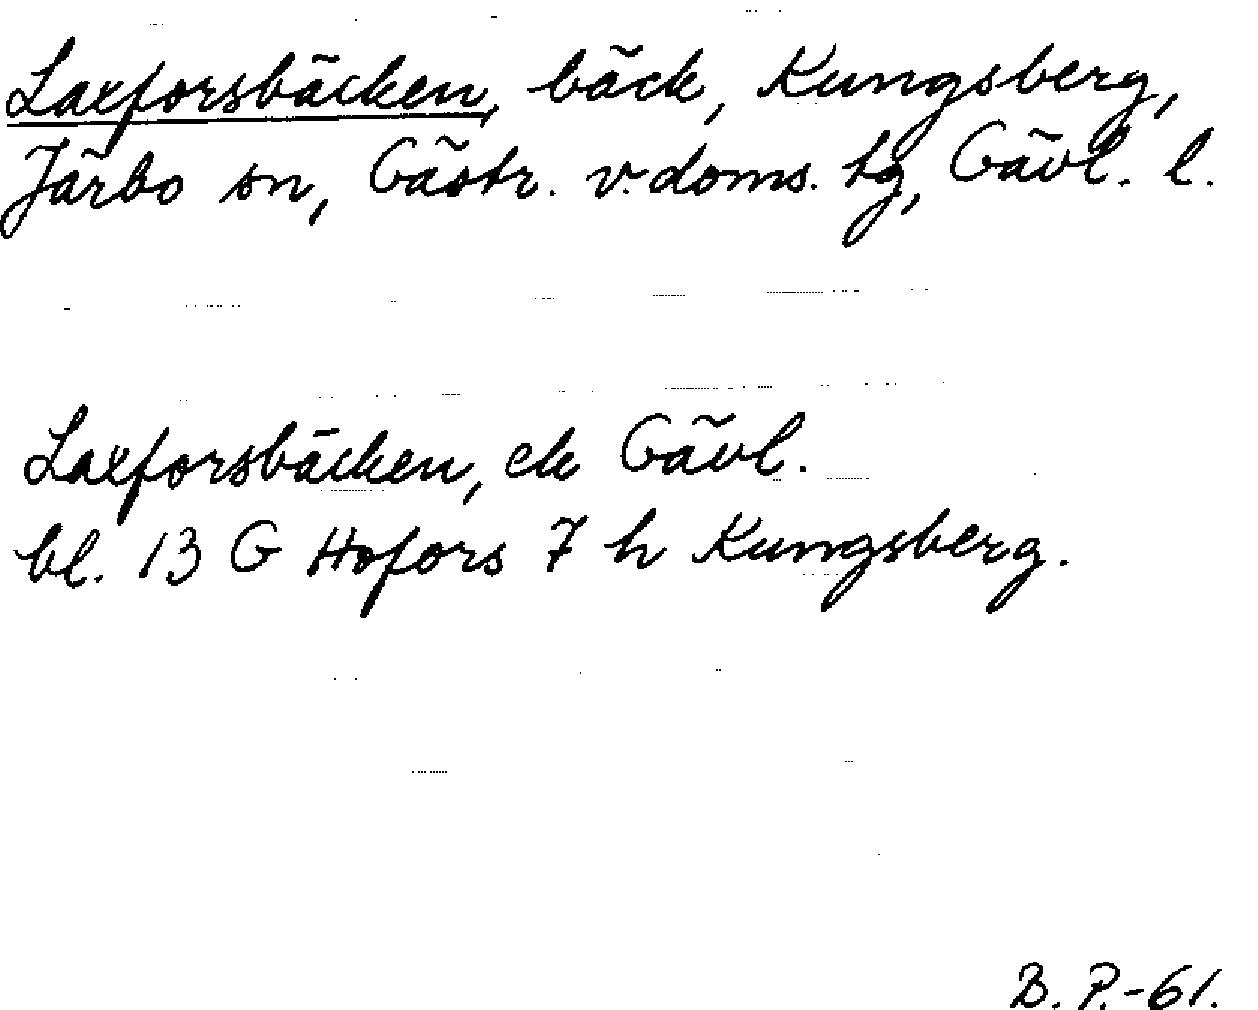 Laxforsbäcken, bäck, Kungsberg,
Järbo sn, Gästr. v. doms. tg, Gävl. l.
Laxforsbäcken, ek Gävl.
bl. 13 G Hofors 7 h Kungsberg.
B. P.-61.